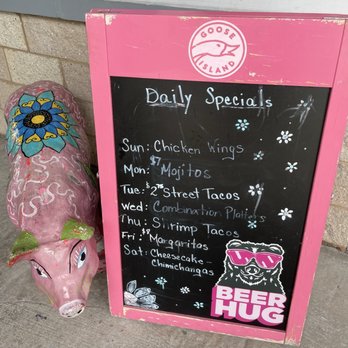 GOOSE
ISLAND
Daily Specials
Sun: Chicken Wings
Mon: $7 Mojitos
Tue: $2.50 Street Tacos
Wed: Combination Platters
Thu: Shrimp Tacos
Fri: $8 Margaritas
Sat: Cheesecake
Chimichangas
BEER
HUG